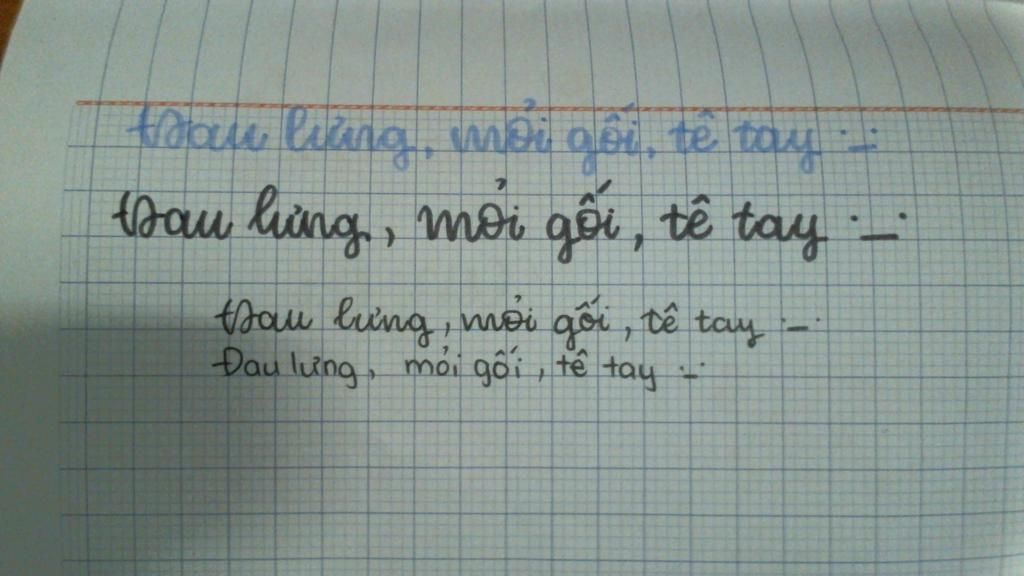 Đau lưng, mỏi gối, tê tay ._.
Đau lưng, mỏi gối, tê tay ._.
Đau lưng, mỏi gối, tê tay ._.
Đau lưng, mỏi gối, tê tay ._.